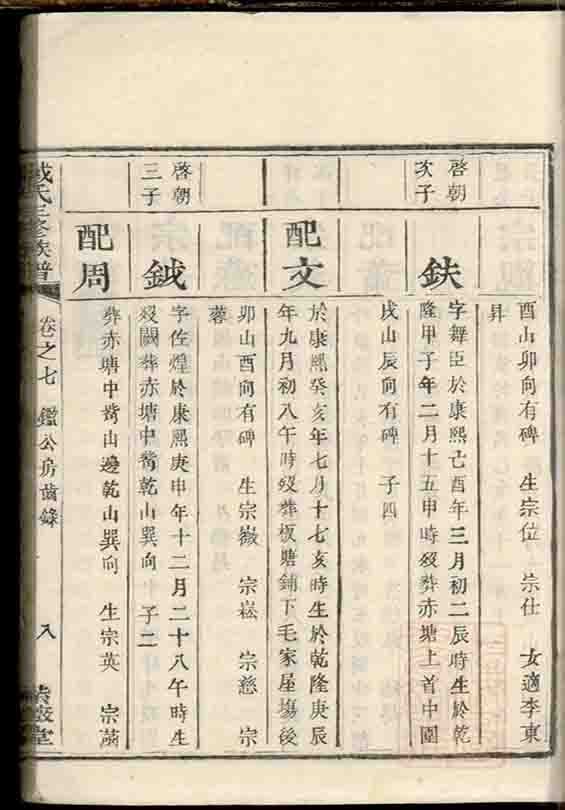 酉山卯向有碑 生宗位 宗仕 女適李東
昇
啓朝次子
鈇
字舞臣於康熙己酉年三月初二辰時生於乾
隆甲子年二月十五申時歿葬赤塘上首中園
戌山辰向有碑 子四
配文
於康熙癸亥年七月十七亥時生於乾隆庚辰
年九月初八午時歿葬板塘鋪下毛家屋塲後
卯山酉向有碑 生宗嶶 宗崧 宗慈 宗
蓉
啓朝三子
鉞
字佐煌於康熙庚申年十二月二十八午時生
歿闕葬赤塘中嘴乾山巽向 子二
配周
葬赤塘中嘴山邊乾山巽向 生宗英 宗
氏三修族譜
卷之七 鑑公房齒錄
八
堂